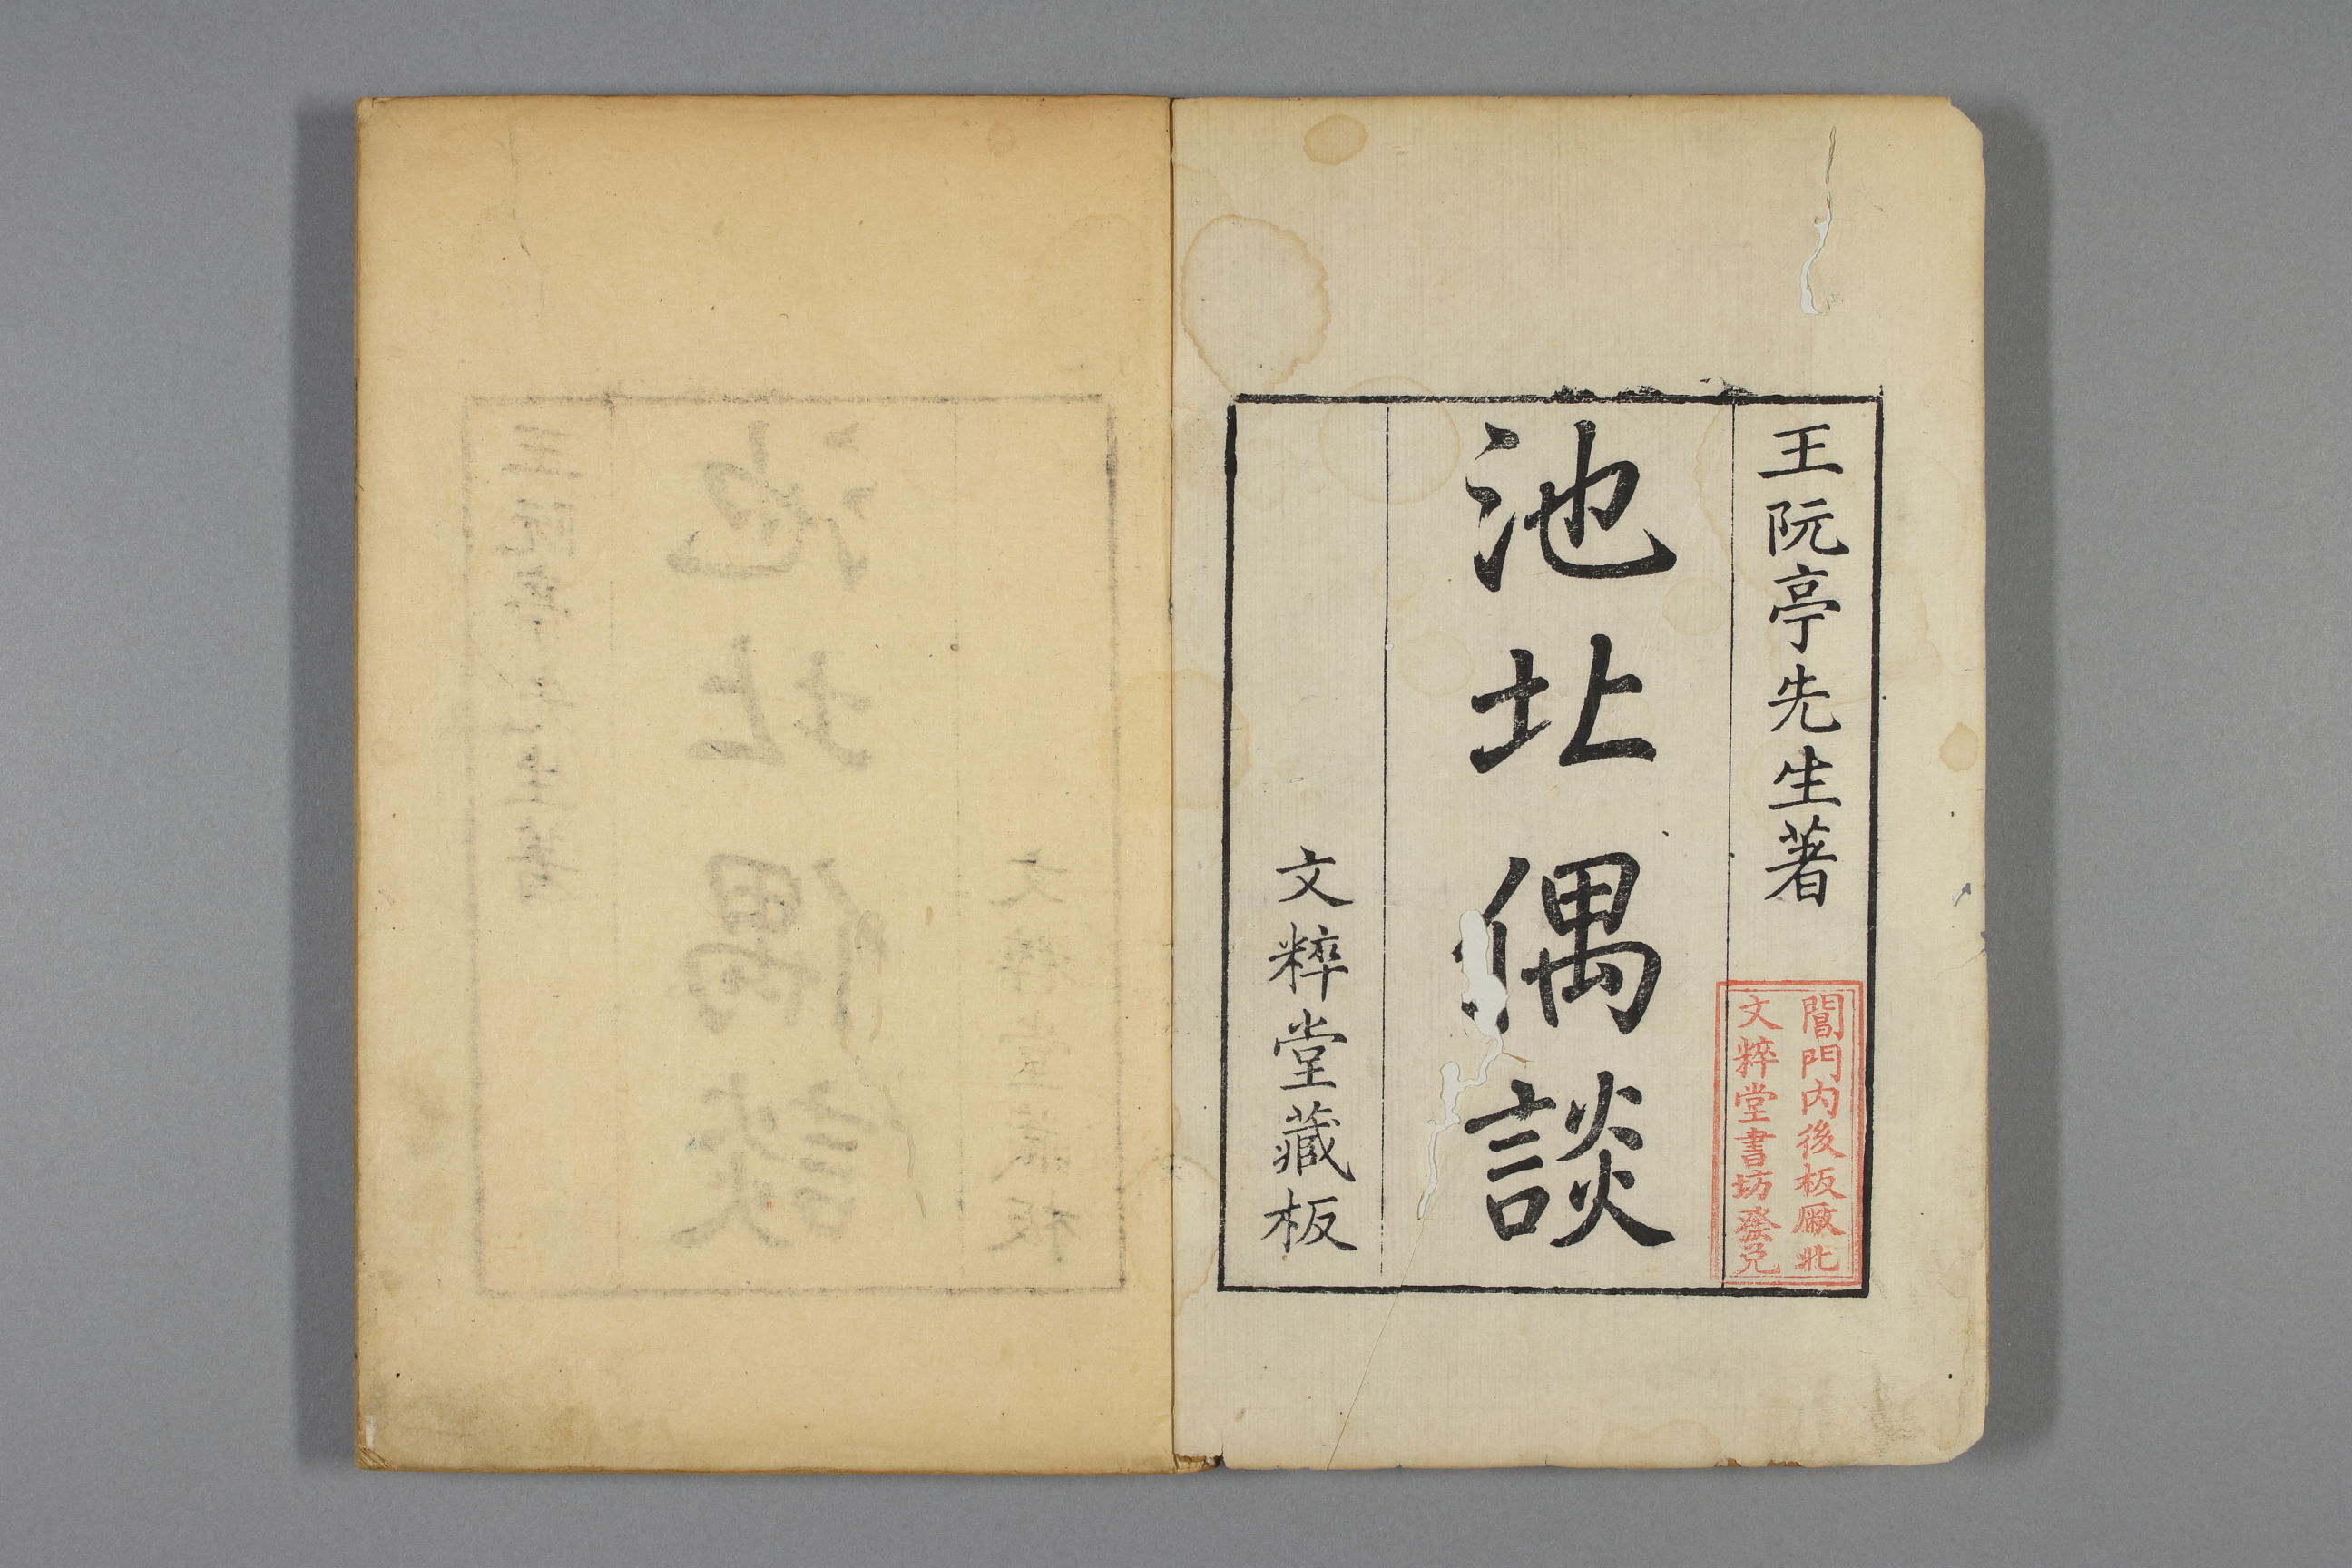 王阮亭先生著
池北偶談
文粹堂藏板
閶門内後板厰北
文粹堂書坊發兌